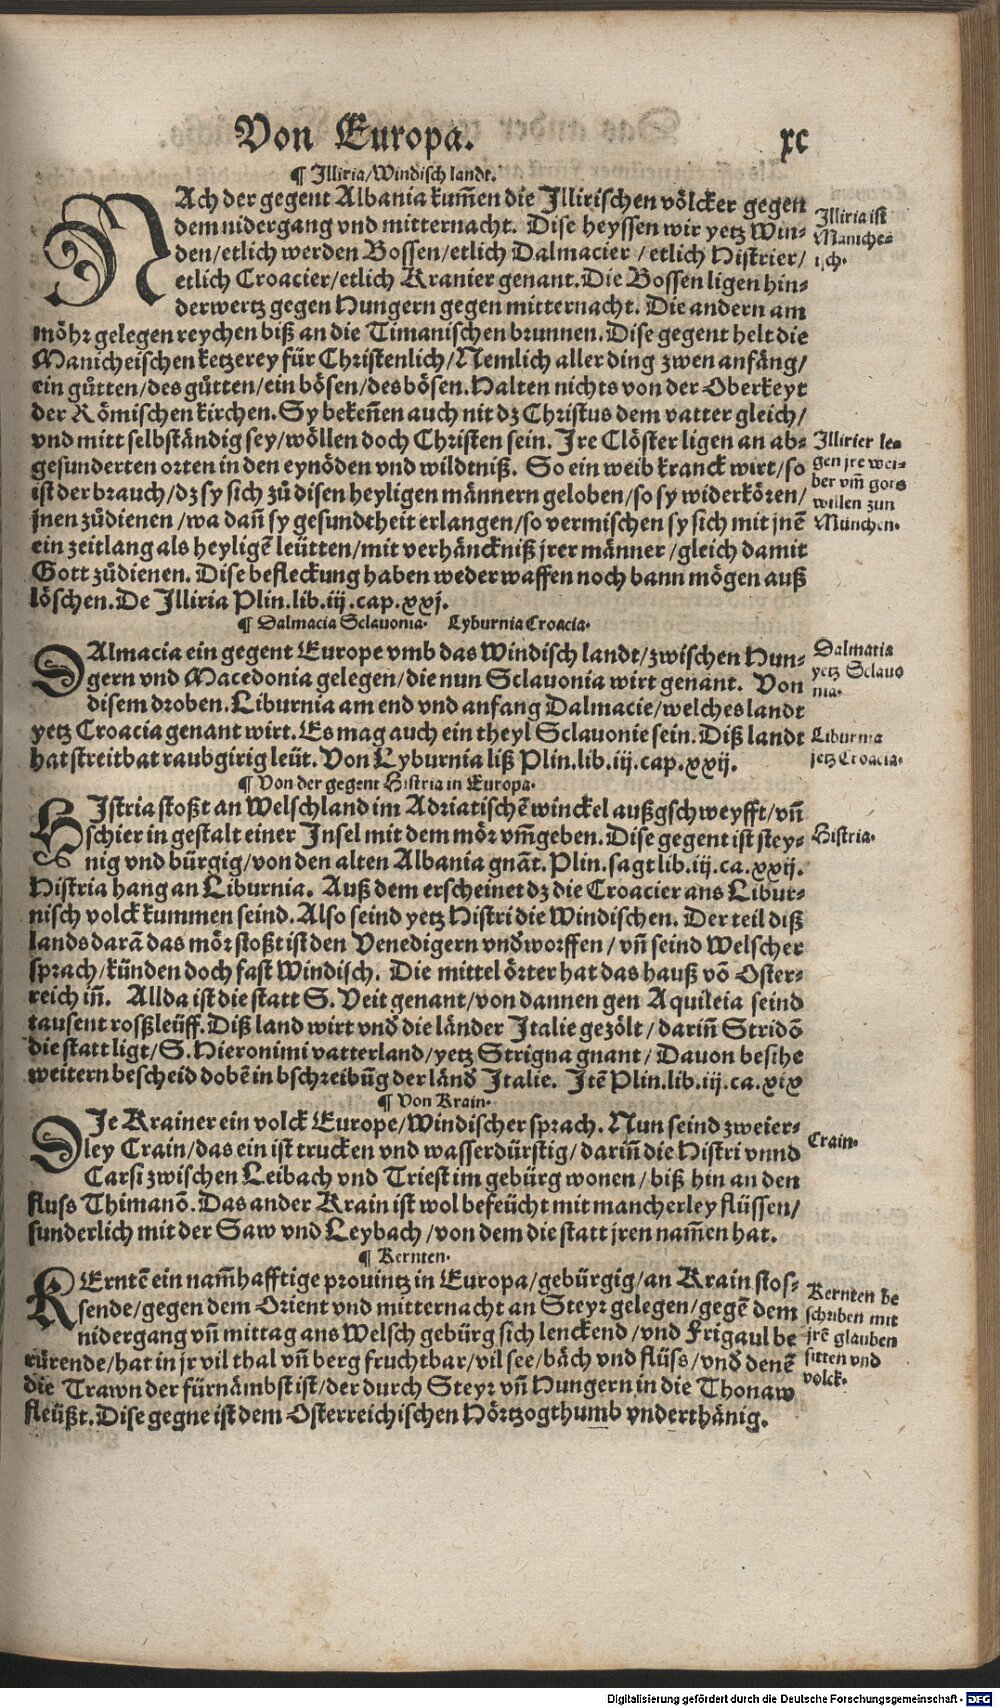 Von Europa.
xc
¶ Illiria/Windisch landt.
NAch der gegent Albania kum̃en die Illirischen völcker gegen
dem nidergang vnd mitternacht. Dise heyssen wir yetz Win⸗
den/etlich werden Bossen/etlich Dalmacier / etlich Histrier/
etlich Croacier/etlich Kranier genant. Die Bossen ligen hin⸗
derwertz gegen Hungern gegen mitternacht. Die andern am
möhr gelegen reychen biß an die Timanischen brunnen. Dise gegent helt die
Manicheischen ketzerey für Christenlich/Nemlich aller ding zwen anfäng/
ein gůtten/des gůtten/ein bösen/des bösen. Halten nichts von der Oberkeyt
der Römischen kirchen. Sy beken̄en auch nit dz Christus dem vatter gleich/
vnd mitt selbständig sey/wöllen doch Christen sein. Ire Clöster ligen an ab⸗
gesunderten orten in den eynöden vnd wildtniß. So ein weib kranck wirt/so
ist der brauch/dz sy sich zů disen heyligen männern geloben/so sy widerkören/
jnen zůdienen /wa dañ sy gesundtheit erlangen/so vermischen sy sich mit jnē
ein zeitlang als heyligē leütten/mit verhänckniß jrer männer /gleich damit
Gott zůdienen. Dise befleckung haben weder waffen noch bann mögen auß
löschen. De Illiria Plin.lib.iij.cap.xxj.
Illiria ist
Maniche⸗
isch.
Illirier le⸗
gen jre wei⸗
ber vm̃ gots
willen zun
München.
¶ Dalmacia Sclauonia. Lyburnia Croacia.
DAlmacia ein gegent Europe vmb das Windisch landt/zwischen Hun⸗
gern vnd Macedonia gelegen/die nun Sclauonia wirt genant. Von
disem droben. Liburnia am end vnd anfang Dalmacie/welches landt
yetz Croacia genant wirt. Es mag auch ein theyl Sclauonie sein. Diß landt
hat streitbat raubgirig leüt. Von Lyburnia liß Plin.lib.iij.cap.xxij.
Dalmatia
yetz Sclauo
nia.
Liburnia
jetz Croacia.
¶ Von der gegent Histria in Europa.
HIstria stoßt an Welschland im Adriatischē winckel außgschweyfft/vñ
schier in gestalt einer Insel mit dem mör vm̃geben. Dise gegent ist stey⸗
nig vnd bürgig/von den alten Albania gnāt. Plin.sagt lib.iij.ca.xxij.
Histria hang an Liburnia. Auß dem erscheinet dz die Croacier ans Libur⸗
nisch volck kummen seind. Also seind yetz Histri die Windischen. Der teil diß
lands darā das mör stoßt ist den Venedigern vnd̕worffen / vñ seind Welscher
sprach/künden doch fast Windisch. Die mittel örter hat das hauß vō Oster⸗
reich iñ. Allda ist die statt S. Veit genant/von dannen gen Aquileia seind
tausent rosßleüff. Diß land wirt vnd̕ die länder Italie gezölt / dariñ Stridō
die statt ligt/S. Hieronimi vatterland/yetz Strigna gnant/ Dauon besihe
weitern bescheid dobē in bschreibūg der länd̕ Italie. Itē Plin.lib.iij.ca.xix
Histria.
¶ Von Krain.
DIe Krainer ein volck Europe/Windischer sprach. Nun seind zweier⸗
ley Crain/das ein ist trucken vnd wasserdürstig/ dariñ die Histri vnnd
Carsi zwischen Leibach vnd Triest im gebürg wonen / biß hin an den
fluss Thimanō. Das ander Krain ist wol befeücht mit mancherley flüssen/
sunderlich mit der Saw vnd Leybach /von dem die statt jren nam̃en hat.
Crain.
¶ Kernten.
KErntē ein nam̃hafftige prouintz in Europa/gebürgig/an Krain stos⸗
sende/gegen dem Orient vnd mitternacht an Steyr gelegen/gegē dem
nidergang vñ mittag ans Welsch gebürg sich lenckend /vnd Frigaul be
rürende/hat in jr vil thal vñ berg fruchtbar/vil see/bäch vnd flüss/vnd̕ denē
die Trawn der fürnämbst ist/der durch Steyr vñ Hungern in die Thonaw
fleüßt. Dise gegne ist dem Osterreichischen Hörtzogthumb vnderthänig.
Kernten be
schriben mit
jrē glauben
sitten vnd
volck.
Digitalisierung gefördert durch die Deutsche Forschungsgemeinschaft - DFG